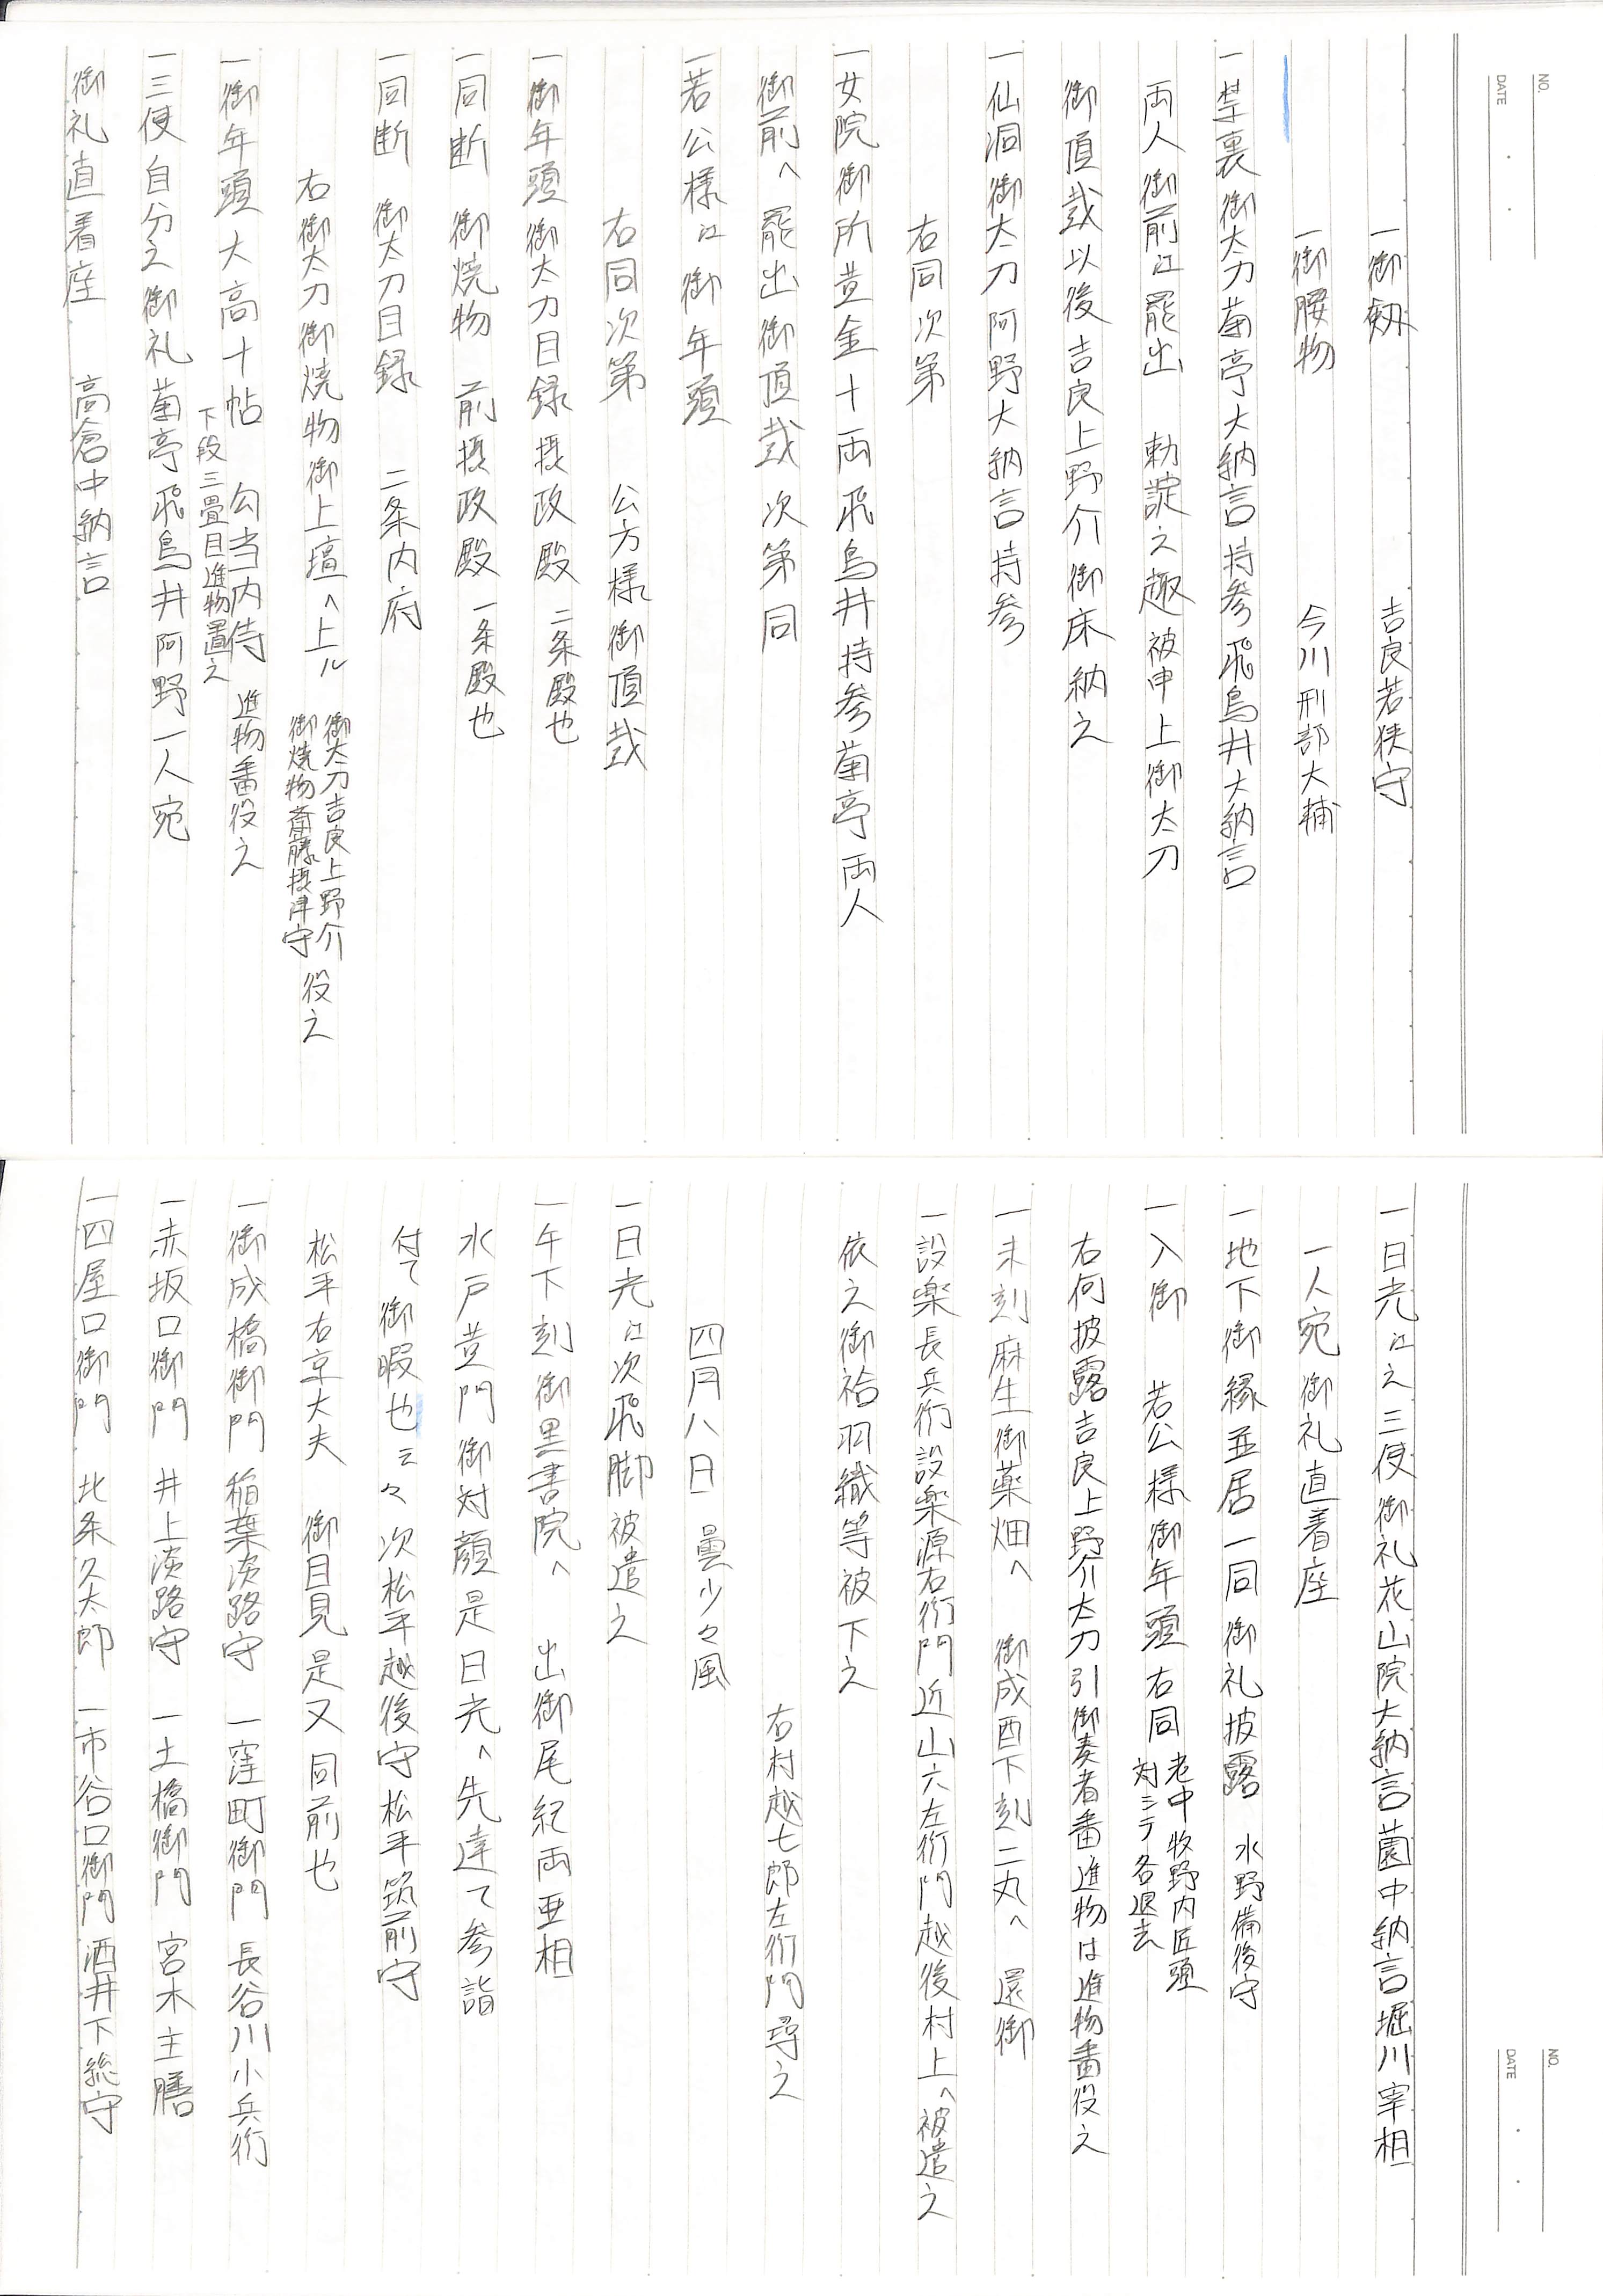 NO.
DATE
一御剱　吉良若狭守
一御腰物　今川刑部大輔
一禁裏御太刀菊亭大納言持参飛鳥井大納言
両人御前江罷出　勅諚之趣被申上御太刀
御頂戴以後吉良上野介御床納之
一仙洞御太刀阿野大納言持参
右同次第
一女院御所並金十両飛鳥井持参菊亭両人
御前へ罷出御頂戴次第同
一若公様江御年頭
右同次第　公方様御頂戴
一御年頭御太刀目録摂政殿　二条殿也
一同断　御焼物　前摂政殿　一条殿也
一同断　御太刀目録　二条内府
右御太刀御焼物御上壇へ上ル　御太刀吉良上野介　御焼物斎藤摂津守　役之
一御年頭大高十帖　勾当内侍　進物番役之
下段三畳目進物置之
一三使自分之御礼菊亭飛鳥井阿野一人宛
御礼直着座　高倉中納言
NO.
DATE
一日光江之三使御礼花山院大納言薗中納言堀川宰相
一人宛御礼直着座
一地下御縁並居一同御礼披露　水野備後守
一入御　若公様御年頭右同　老中牧野内匠頭　対シテ各退去
右何披露吉良上野介太刀引御奏者番進物は進物番役之
一未刻麻生御薬畑へ　御成酉下刻二丸へ　還御
一設楽長兵衛設楽源右衛門近山六左衛門越後村上へ被遣之
依之御袷羽織等被下之
右村越七郎左衛門尋之
四月八日　曇少々風
一日光江次飛脚被遣之
一午下刻御黒書院へ　出御尾紀両亜相
水戸並門御対顔是日光へ先達て参詣
付て御暇也云々次松平越後守松平筑前守
松平右京大夫　御目見是又同前也
一御成橋御門　稲葉淡路守　一窪町御門　長谷川小兵衛
一赤坂口御門　井上淡路守　一土橋御門　宮木主膳
一四屋口御門　北条久太郎　一市谷口御門　酒井下総守